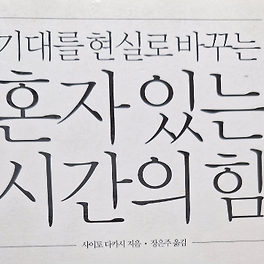 기대를 현실로 바꾸는
혼자 있는
시간의 힘
사이토 다카시 지음 • 장은주 옮김